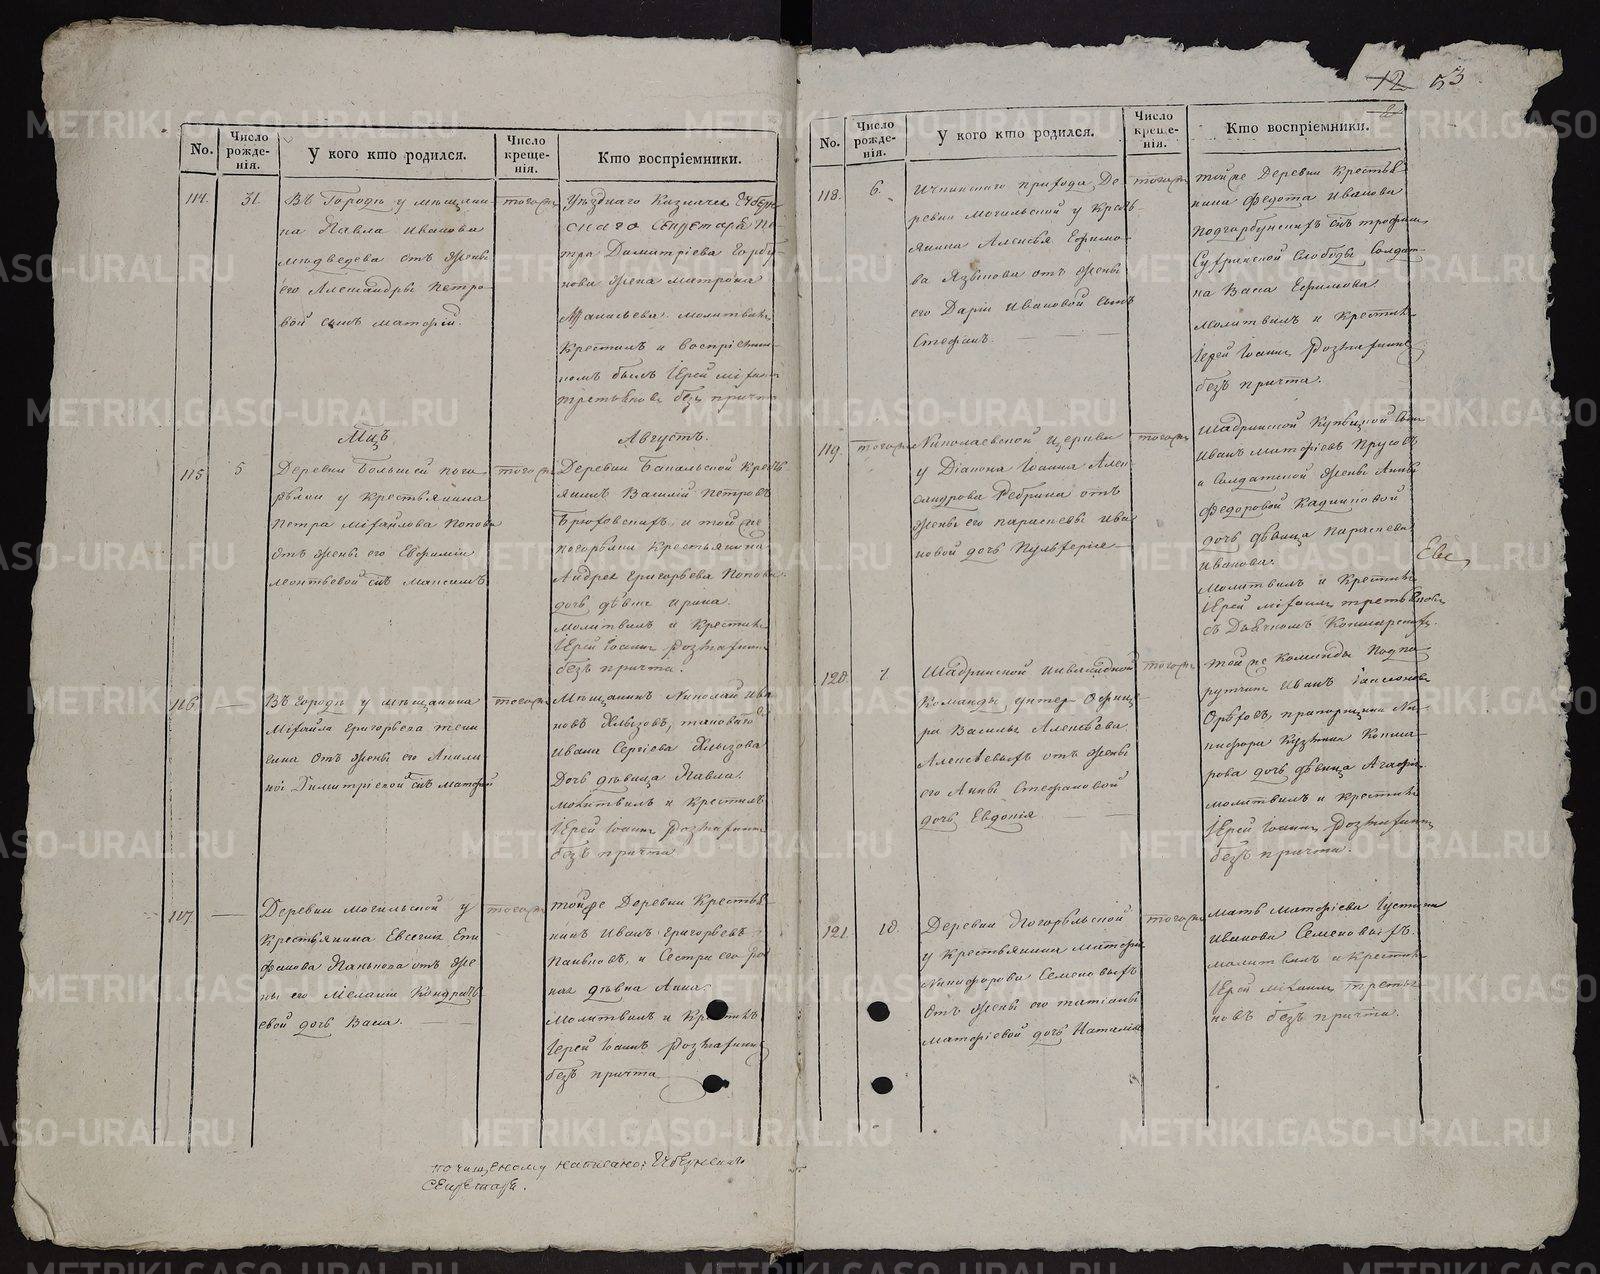 12 53
No.
Число рожде-
нія.
У кого кто родился.
Число креще-
нія.
Кто воспріемники.
114. 31.
Въ Городѣ у мѣщани-
на Павла Иванова
медведева отъ жены
его Александры Петро-
вой сынъ матѳій.
тогожъ
Уѣзднаго Казначея Губерн-
скаго Секретаря Пе-
тра Димитріева Горбу-
нова жена матрона
молитвилъ
Крестилъ и воспріемни-
комъ былъ Іерей міхаилъ
третьяковъ безъ причта
Мцъ Августъ.
115 5
Деревни Большей пого-
рѣлки у Крестьянина
Петра міхайлова Попова
отъ жены его Евфиміи
леонтьевой сынъ максимъ
тогожъ
Деревни Бакальской Крест-
янинъ Василій Петровъ
Брюховскихъ, и той же
погорѣлки Крестьянина
Андрея григорьева Попова
дочь дѣвка ирина
молитвилъ и Крестилъ
Іерей Іоаннъ
безъ причта.
116 —
Въ городѣ у мѣщанина
Міхайла григорьева
отъ жены его Акили-
ны Димитріевой сынъ матѳей
тогожъ
Мѣщанинъ Николай Ива-
новъ Хлызовъ, таковаго
ивана Сергіева Хлызова
Дочь дѣвица Павла.
молитвилъ и Крестилъ
Іерей Іоаннъ
безъ причта
117 —
Деревни могильской у
Крестьянина Евсевія Епи-
фанова Панькова отъ же-
ны его Меланіи Кондрать-
евой дочь Васса.
тогожъ
той же Деревни Крестья-
нинъ Иванъ григорьевъ
Паньковъ, и Сестра его род-
ная дѣвка Анна.
Молитвилъ и Крестилъ
Іерей Іоаннъ
безъ причта
по чищеному написано: Губернскаго
Секретаря.
No.
Число рожде-
нія.
У кого кто родился.
Число креще-
нія.
Кто воспріемники.
118. 6.
Ичкинскаго прихода Де-
ревни могильской у Крест-
янина Алексѣя Ефимо-
ва Язькова отъ жены
его Даріи Ивановой сынъ
Стефанъ.
тогожъ
той же Деревни Крестья-
нина Федота Иванова
Подгорбунскихъ сынъ трофимъ
Слободы Солдат-
ка Васса Ефимова
молитвилъ и Крестилъ
Іерей Іоаннъ
безъ причта.
119. тогожъ
Николаевской церкви
у Діакона Іоанна Алек-
сандрова Ребрина отъ
жены его параскевы ива-
новой дочь Пульхерія
тогожъ
Шадринской Купецкой сынъ
Иванъ матѳіевъ Прусовъ
и Солдатской жены Анны
Федоровой Кадниковой
дочь дѣвица Параскева
иванова.
молитвилъ и Крестилъ
Іерей міхаилъ третьяковъ
съ Дьячкомъ
120. 7
Шадринской инвалидной
Команды унтер-Офице-
ра Василья Алексѣева
Алексѣевыхъ отъ жены
его Анны Стефановой
дочь Евдокія
тогожъ
той же Команды Подпо-
рутчикъ Иванъ
Орѣховъ, прапорщика Ни-
кифора Кузьмина
дочь дѣвица Агафія
молитвилъ и Крестилъ
Іерей Іоаннъ
безъ причта.
121. 10.
Деревни Погорѣльской
у Крестьянина матѳея
Никифорова Семеновыхъ
отъ жены его татіаны
матѳіевой дочь Наталія
тогожъ
мать матѳіева Іустина
иванова Семеновыхъ.
молитвилъ и Крестилъ
Іерей міхаилъ третья-
ковъ безъ причта.
METRIKI.GASO-URAL.RU